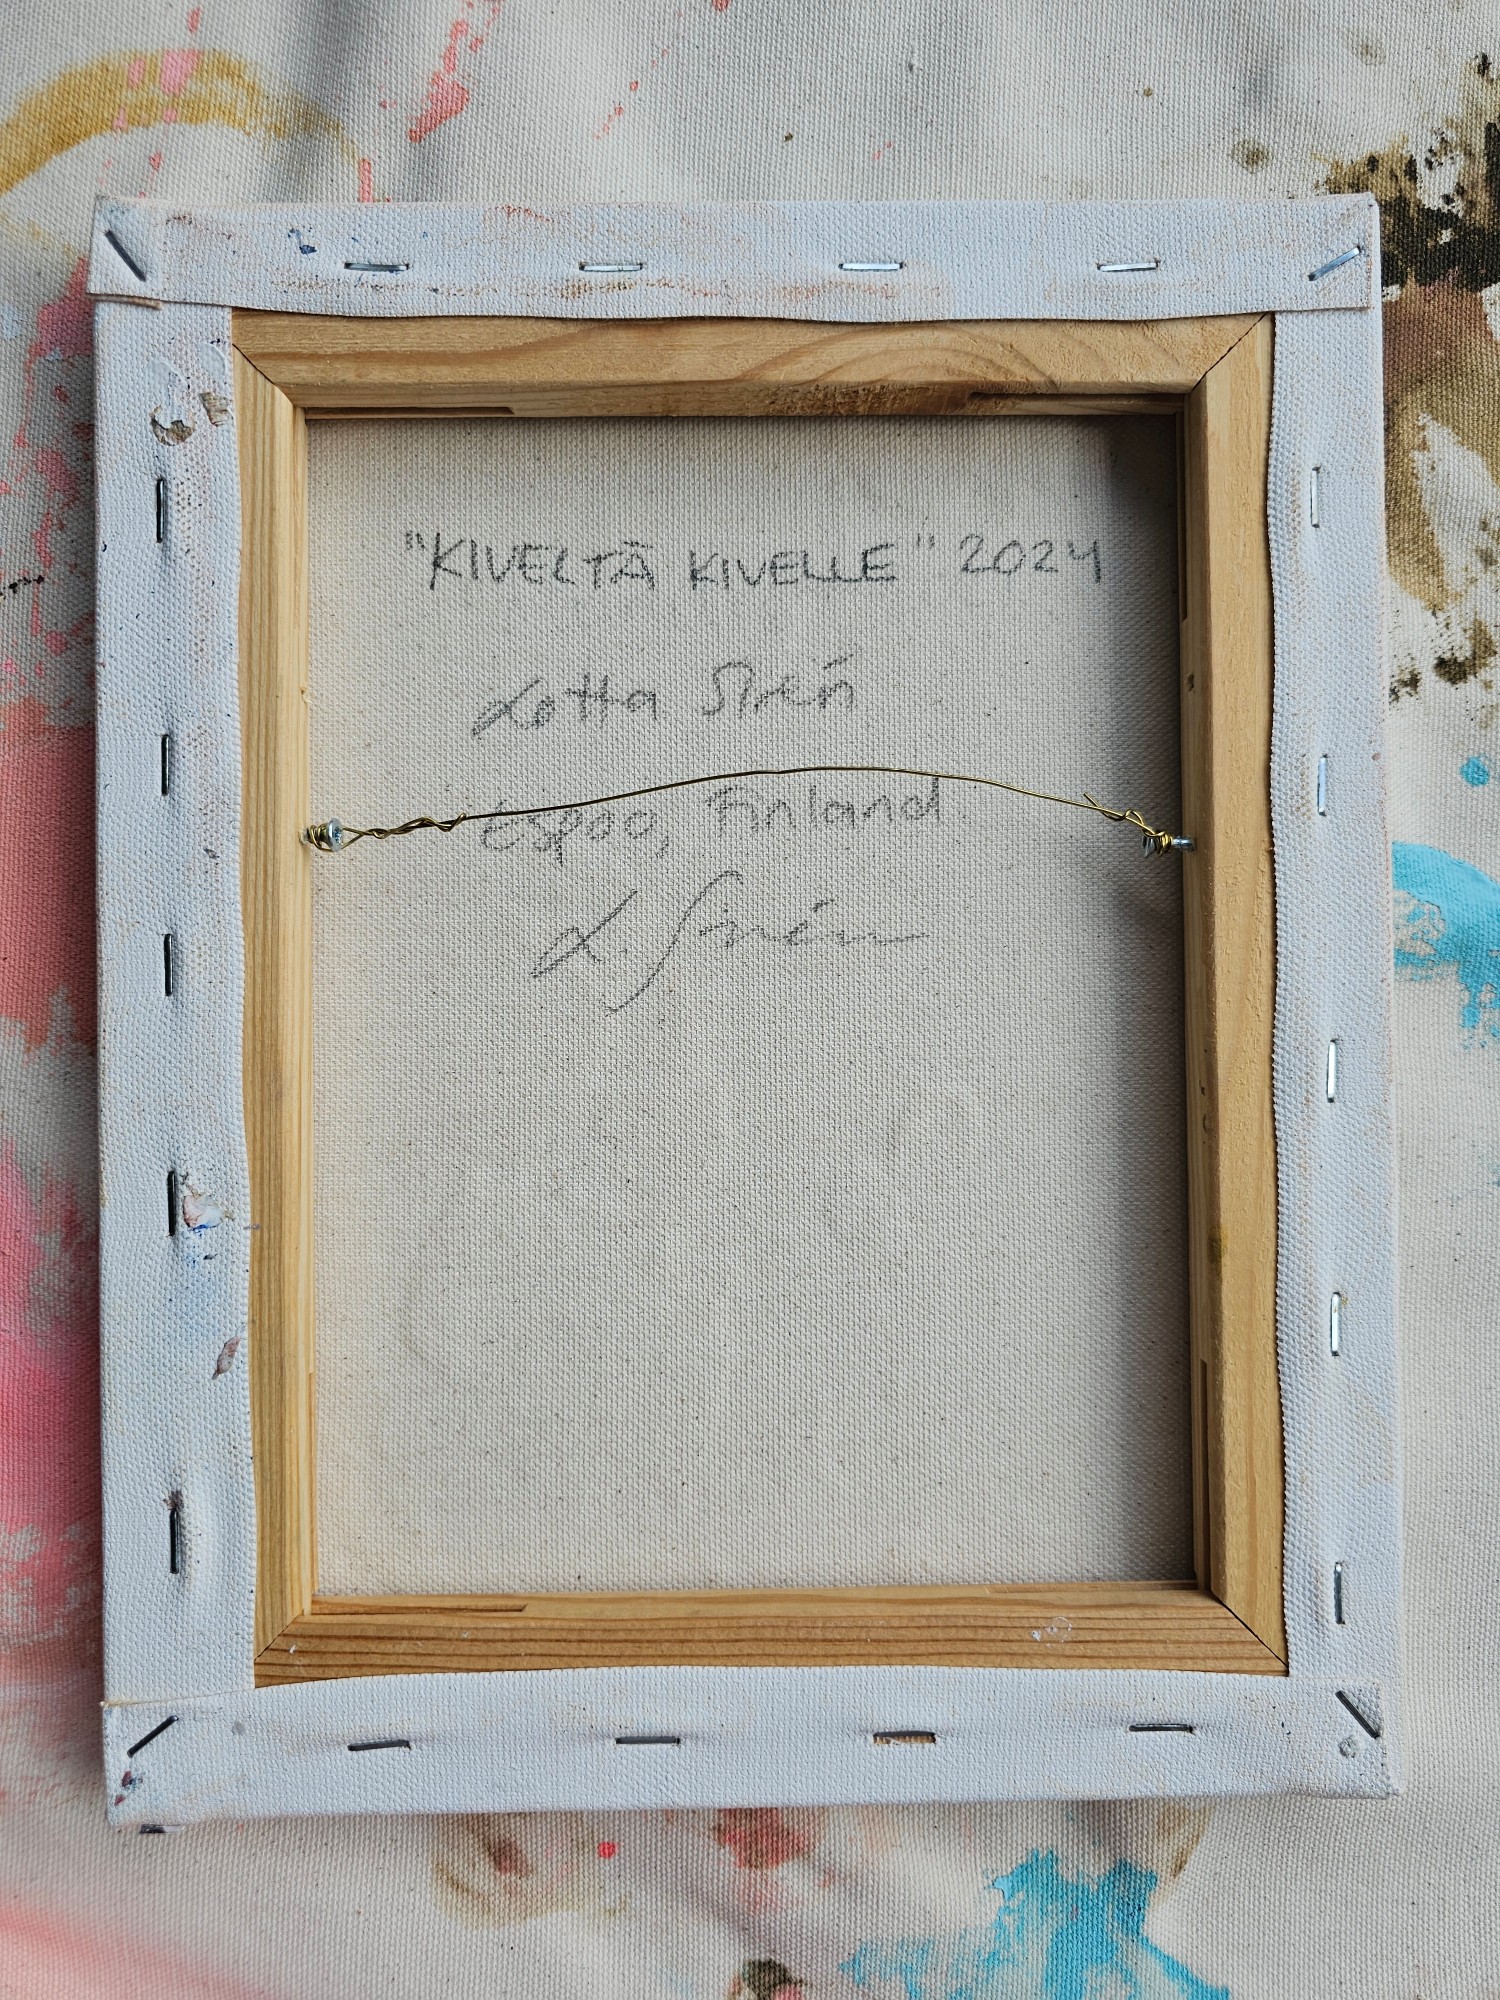 "KIVELTÄ KIVELLE" 2024
Lotta Sirén
Espoo, Finland
L. Sirén